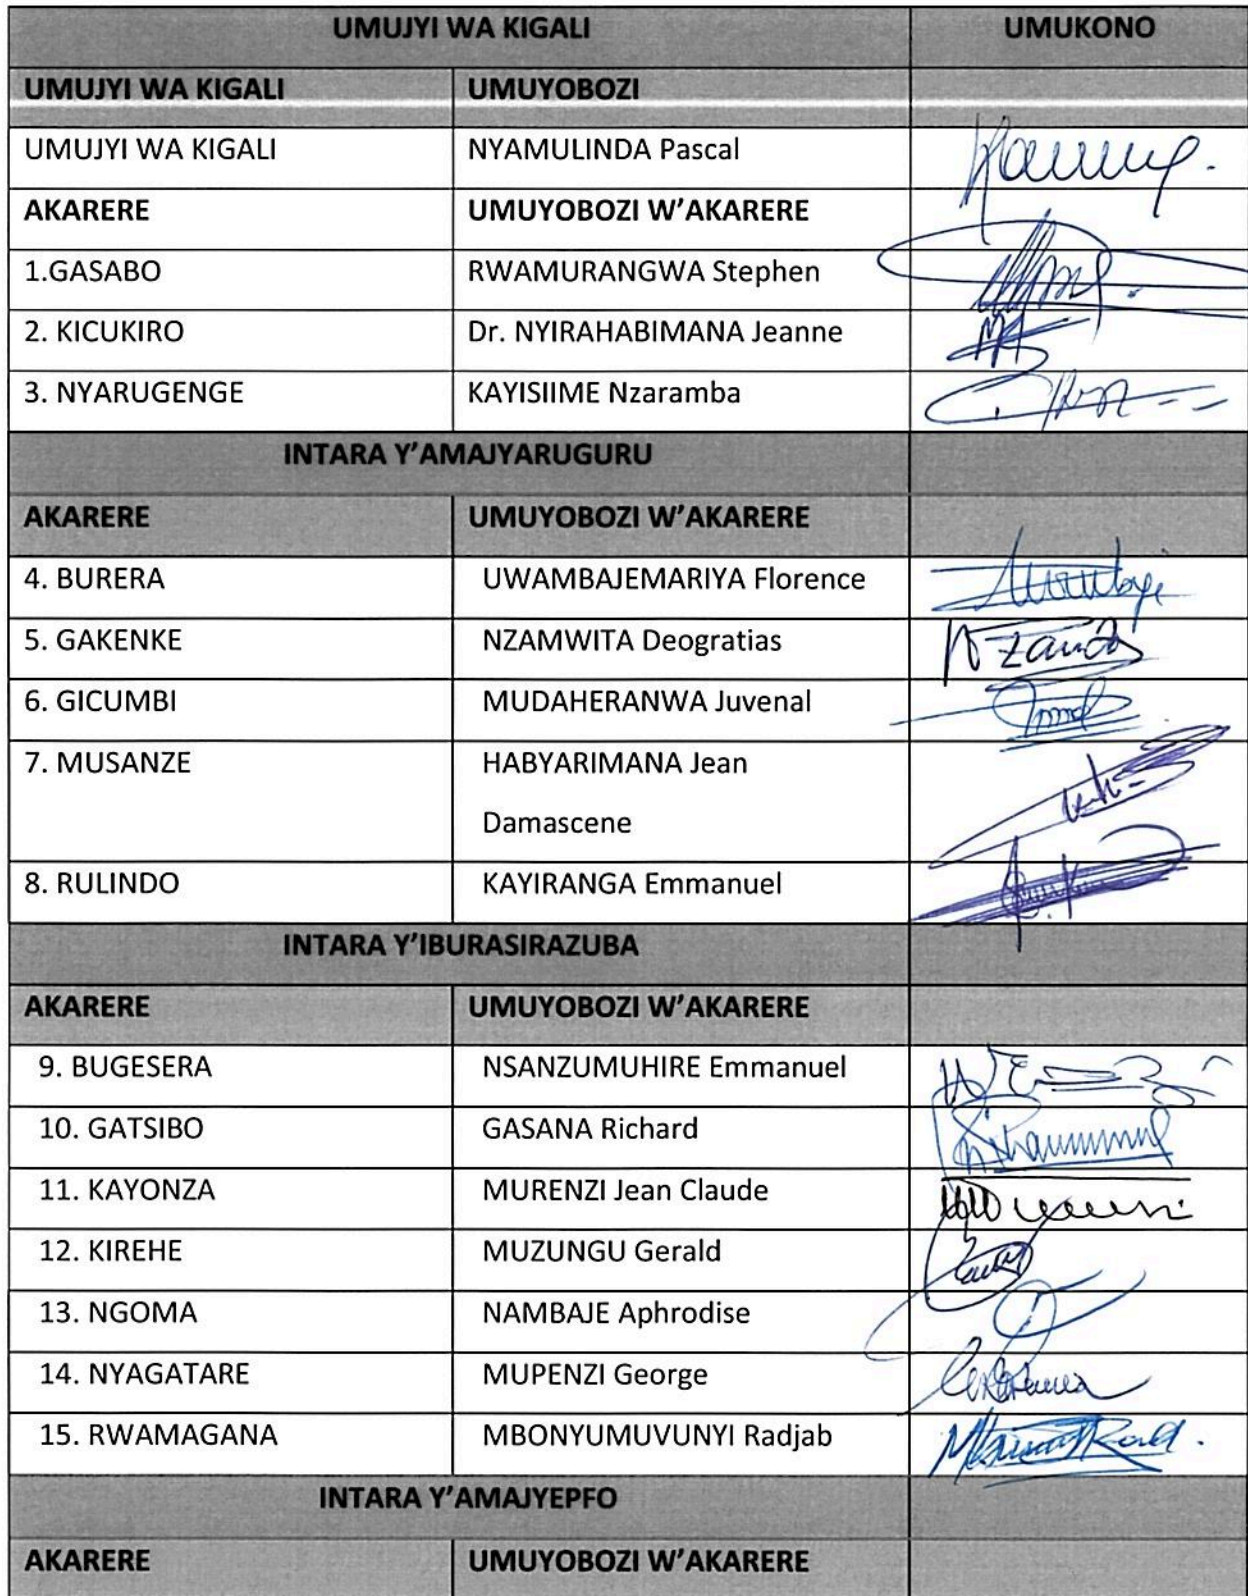 UMUJYI WA KIGALI UMUKONO
UMUJYI WA KIGALI UMUYOBOZI
UMUJYI WA KIGALI NYAMULINDA Pascal
AKARERE UMUYOBOZI W'AKARERE
1.GASABO RWAMURANGWA Stephen
2. KICUKIRO Dr. NYIRAHABIMANA Jeanne
3. NYARUGENGE KAYISIIME Nzaramba
INTARA Y'AMAJYARUGURU
AKARERE UMUYOBOZI W'AKARERE
4. BURERA UWAMBAJEMARIYA Florence
5. GAKENKE NZAMWITA Deogratias
6. GICUMBI MUDAHERANWA Juvenal
7. MUSANZE HABYARIMANA Jean
Damascene
8. RULINDO KAYIRANGA Emmanuel
INTARA Y'IBURASIRAZUBA
AKARERE UMUYOBOZI W'AKARERE
9. BUGESERA NSANZUMUHIRE Emmanuel
10. GATSIBO GASANA Richard
11. KAYONZA MURENZI Jean Claude
12. KIREHE MUZUNGU Gerald
13. NGOMA NAMBAJE Aphrodise
14. NYAGATARE MUPENZI George
15. RWAMAGANA MBONYUMUVUNYI Radjab
INTARA Y'AMAJYEPFO
AKARERE UMUYOBOZI W'AKARERE